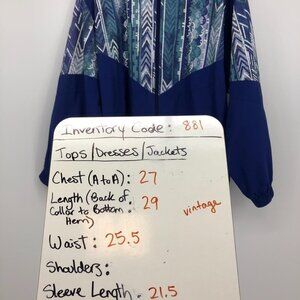 Inventory Code: 881
Tops/Dresses/Jackets
Chest (A to A): 27
Length (Back of
Collar to Bottom
Hem): 29
vintage
Waist: 25.5
Shoulders:
Sleeve Length: 21.5